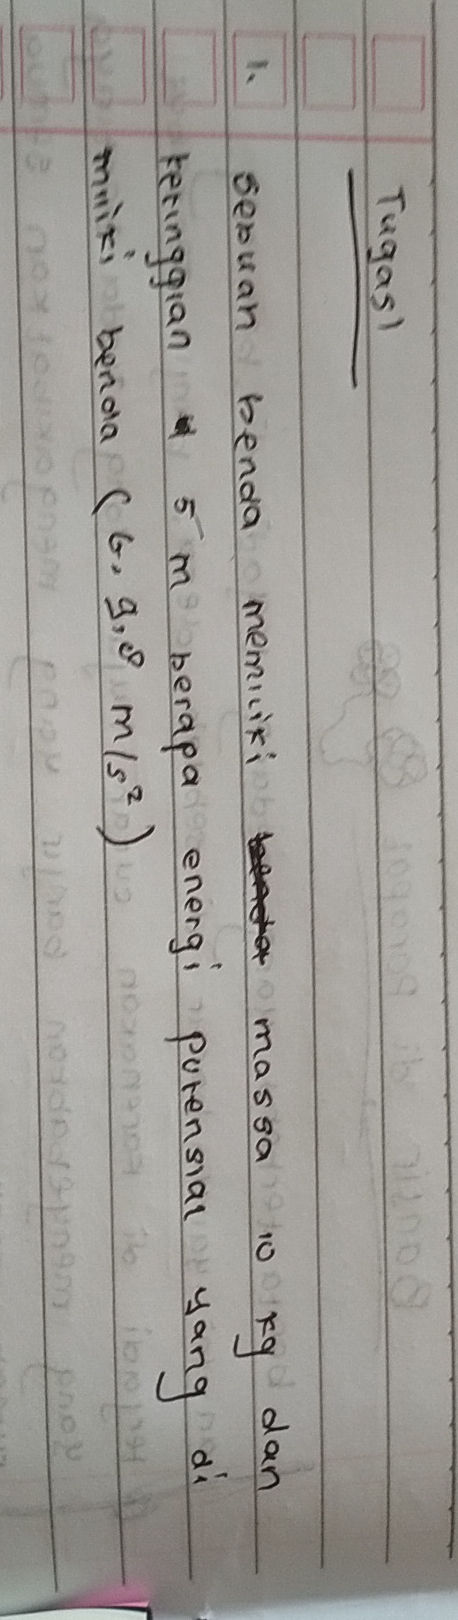 Tugas1
1. sebuah benda memiliki massa 10 kg dan
ketinggian 5 m berapa energi potensial yang di
miliki benda (G, 9,8 m/s²)